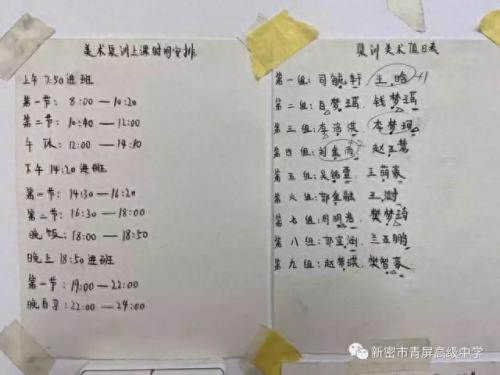 美术集训上课时间安排
上午 7:50进班
第一节: 8:00 — 10:20
第二节: 10:40 — 12:00
午 休: 12:00 — 14:10
下午 14:20进班
第一节: 14:30 — 16:20
第二节: 16:30 — 18:00
晚饭: 18:00 — 18:50
晚上 18:50进班
第一节: 19:00 — 22:00
晚自习: 22:00 — 24:00
集训美术值日表
第一组: 司毓轩 王晗 +1
第二组: 梦瑶. 钱梦瑶
第三组: 李浩淇. 李梦瑶
第四组: 赵玉慧
第五组: 王萌豪
第六组: 王澍
第七组: 周明浩. 樊梦琦
第八组: 兰亚鹏
第九组: 赵梦琪. 樊智豪
新密市青屏高级中学